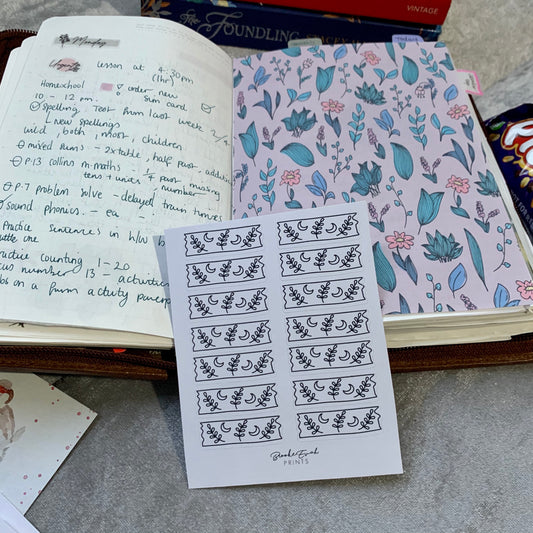 VINTAGE
The FOUNDLING STACEY
Today
Monday
lesson at 4:30pm
(1hr)
Homeschool
order new
10 - 12pm.
sim card
Spelling Test from last week 2/4
↳ new spellings
wild, both, most, children
mixed sums - 2x table, half past, adding
p.13 collins maths - 1/4 past missing
tens + units number
p.7 problem solve - delayed train times
sound phonics. - ea
Practice sentences in h/w
Practice counting 1-20
number 13 - activities
on a farm activity
PRINTS